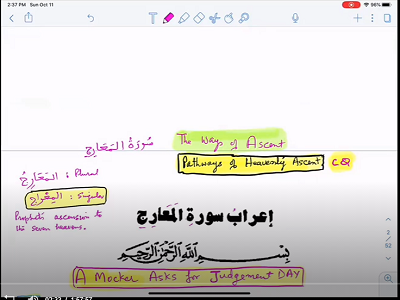 2:37 PM Sun Oct 11
96%
سُورَةُ الْمَعَارِجِ The Ways of Ascent
Pathways of Heavenly Ascent CQ
الْمَعَارِجُ : Plural
الْمِعْرَاجُ : Singular
Prophet's ascension to
the seven heavens.
إعراب سورة المَعَارِجِ
بِسْمِ اللَّهِ الرَّحْمَنِ الرَّحِيمِ
A Mocker Asks for Judgement DAY
2
02:33 / 1:57:57